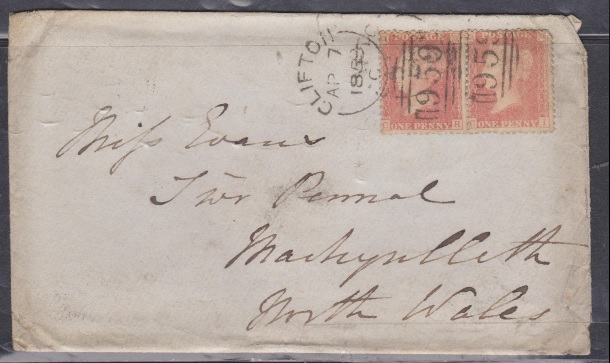 CLIFTON
AP 7
185
C
POSTAGE
ONE PENNY
H
POSTAGE
ONE PENNY
I
959
959
Miss Evans
Pennal
Machynlleth
North Wales